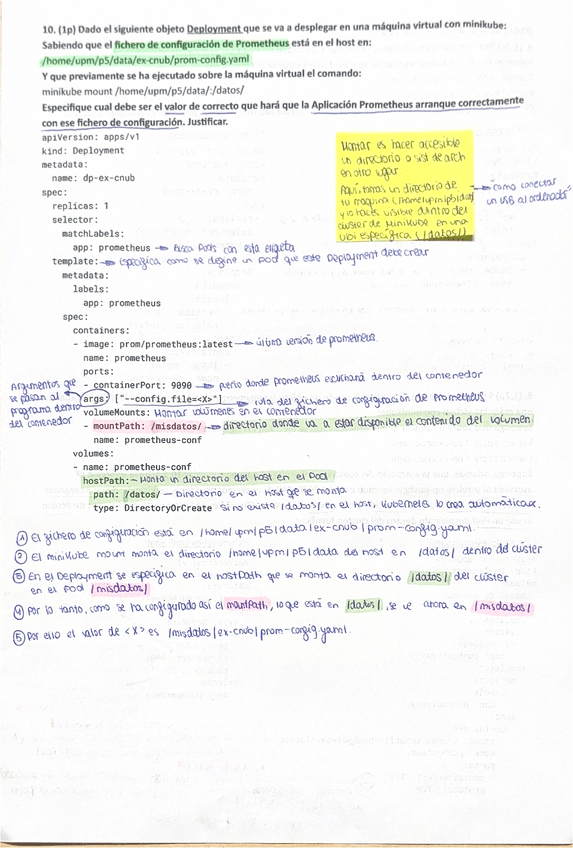 10. (1p) Dado el siguiente objeto Deployment que se va a desplegar en una máquina virtual con minikube:
Sabiendo que el fichero de configuración de Prometheus está en el host en:
/home/upm/p5/data/ex-cnub/prom-config.yaml
Y que previamente se ha ejecutado sobre la máquina virtual el comando:
minikube mount /home/upm/p5/data/:/datos/
Especifique cual debe ser el valor de correcto que hará que la Aplicación Prometheus arranque correctamente
con ese fichero de configuración. Justificar.
apiVersion: apps/v1
kind: Deployment
metadata:
name: dp-ex-cnub
spec:
replicas: 1
selector:
matchLabels:
app: prometheus → Busca Pods con esta etiqueta
template: → Especifica como se define un pod que este Deployment debe crear
metadata:
labels:
app: prometheus
spec:
containers:
- image: prom/prometheus:latest → última versión de prometheus.
name: prometheus
ports:
- containerPort: 9090 → puerto donde prometheus escuchará dentro del contenedor
args: ["--config.file=<X>"] → ruta del fichero de configuración de Prometheus
volumeMounts: Montar volúmenes en el contenedor
- mountPath: /misdatos/ → directorio donde va a estar disponible el contenido del volumen
name: prometheus-conf
volumes:
- name: prometheus-conf
hostPath: → Monta un directorio del host en el Pod
path: /datos/ → Directorio en el host que se monta
type: DirectoryOrCreate Si no existe /datos/ en el host, Kubernetes lo crea automáticam.
Montar es hacer accesible
un directorio o sist de arch
en otro lugar
Aquí, tomas un directorio de
tu máquina (/home/upm/p5/data)
y lo haces visible dentro del
cluster de Minikube en una
ubi específica (/datos/)
→ como conectar
un USB al ordenador
Argumentos que
se pasan al
programa dentro
del contenedor
① El fichero de configuración está en /home/upm/p5/data/ex-cnub/prom-config.yaml.
② El minikube mount monta el directorio /home/upm/p5/data del host en /datos/ dentro del clúster
③ En el Deployment se especifica en el hostPath que se monta el directorio /datos/ del clúster
en el Pod /misdatos/
④ Por lo tanto, como se ha configurado así el mountPath, lo que está en /datos/, se ve ahora en /misdatos/
⑤ Por ello el valor de <X> es /misdatos/ex-cnub/prom-config.yaml.